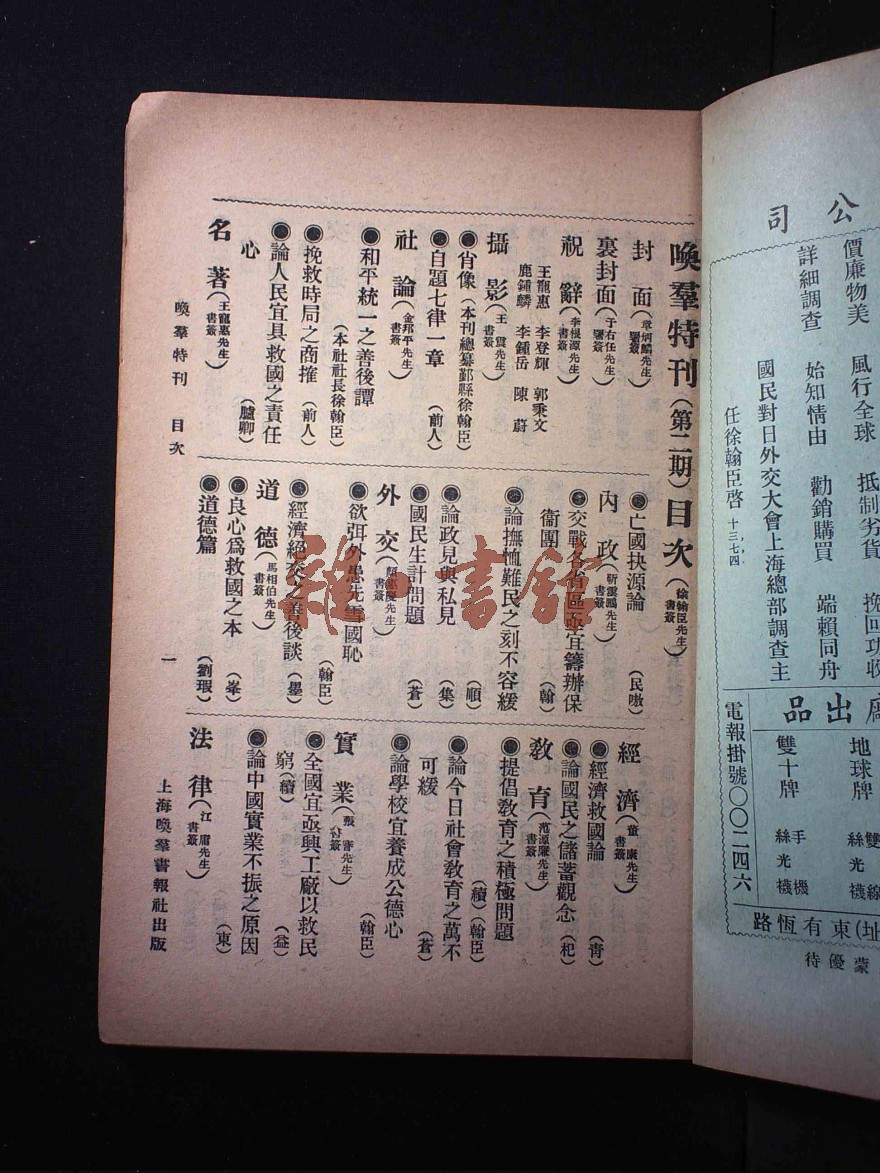 喚羣特刊(第二期)目次(徐翰臣先生書簽)
封面(章炳麟先生署簽)
裏封面(于右任先生署簽)
祝辭(李根源先生書簽)
王寵惠 李登輝 郭秉文
鹿鍾麟 李鍾岳 陳蔚
攝影(王震先生書簽)
●肖像(本刊總纂鄞縣徐翰臣)
●自題七律一章(前人)
社論(金邦平先生書簽)
●和平統一之善後譚
(本社社長徐翰臣)
●挽救時局之商搉(前人)
●論人民宜具救國之責任
心(臚卿)
名著(王寵惠先生書簽)
●亡國抉源論(民噭)
內政(靳雲鵬先生書簽)
●交戰各省區亟宜籌辦保
衞團(翰)
●論撫恤難民之刻不容緩
(順)
●論政見與私見(集)
●國民生計問題(蒼)
外交(顏惠慶先生書簽)
●欲弭外患先雪國恥
(翰臣)
●經濟絕交之善後談(墨)
道德(馬相伯先生書簽)
●良心爲救國之本(峯)
●道德篇(劉瑕)
經濟(董康先生書簽)
●經濟救國論(靑)
●論國民之儲蓄觀念(杞)
敎育(范源濂先生書簽)
●提倡敎育之積極問題
(續)(翰臣)
●論今日社會敎育之萬不
可緩(蒼)
●論學校宜養成公德心
(翰臣)
實業(張謇先生書簽)
●全國宜亟興工廠以救民
窮(續)(益)
●論中國實業不振之原因
(東)
法律(江庸先生書簽)
喚羣特刊 目次
一
上海喚羣書報社出版
公司
價廉物美 風行全球 抵制劣貨 挽回功收
詳細調查 始知情由 勸銷購買 端賴同舟
國民對日外交大會上海總部調查主
任徐翰臣啓 十三,七,四
廠出品
地球牌
雙十牌 手機絲光襪
電報掛號〇〇二四六
址)東有恆路
蒙優待
雜·書館